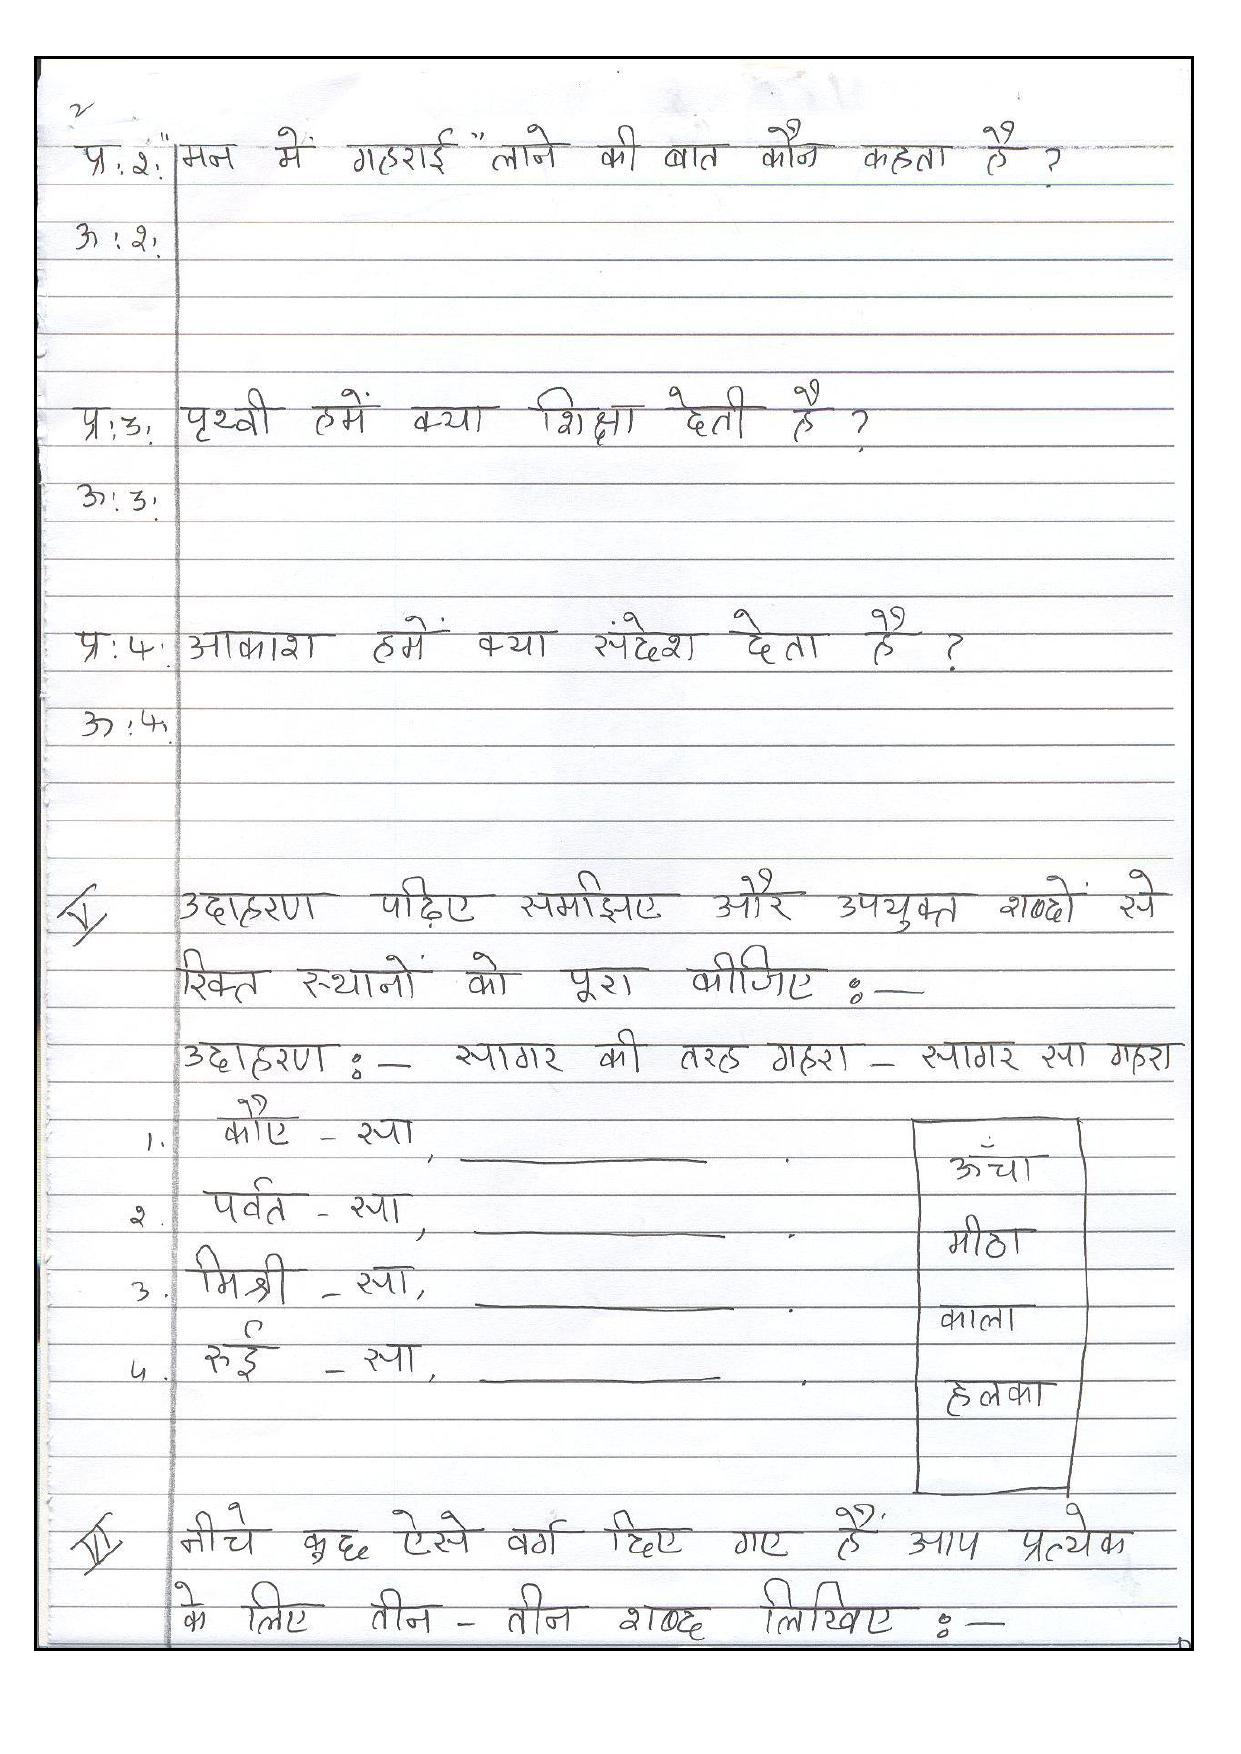 २
प्र:२: "मन में गहराई" लाने की बात कौन कहता है ?
उ:२:
प्र:३: पृथ्वी हमें क्या शिक्षा देती है ?
उ:३:
प्र:४: आकाश हमें क्या संदेश देता है ?
उ:४:
V उदाहरण पढ़िए समझिए और उपयुक्त शब्दों से
रिक्त स्थानों को पूरा कीजिए :—
उदाहरण :— सागर की तरह गहरा – सागर सा गहरा
१. कौए – सा, ________ .
ऊँचा
२. पर्वत – सा, ________ .
मीठा
३. मिश्री – सा, ________ .
काला
४. रुई – सा, ________ .
हलका
VI नीचे कुछ ऐसे वर्ग दिए गए हैं, आप प्रत्येक
के लिए तीन – तीन शब्द लिखिए :—